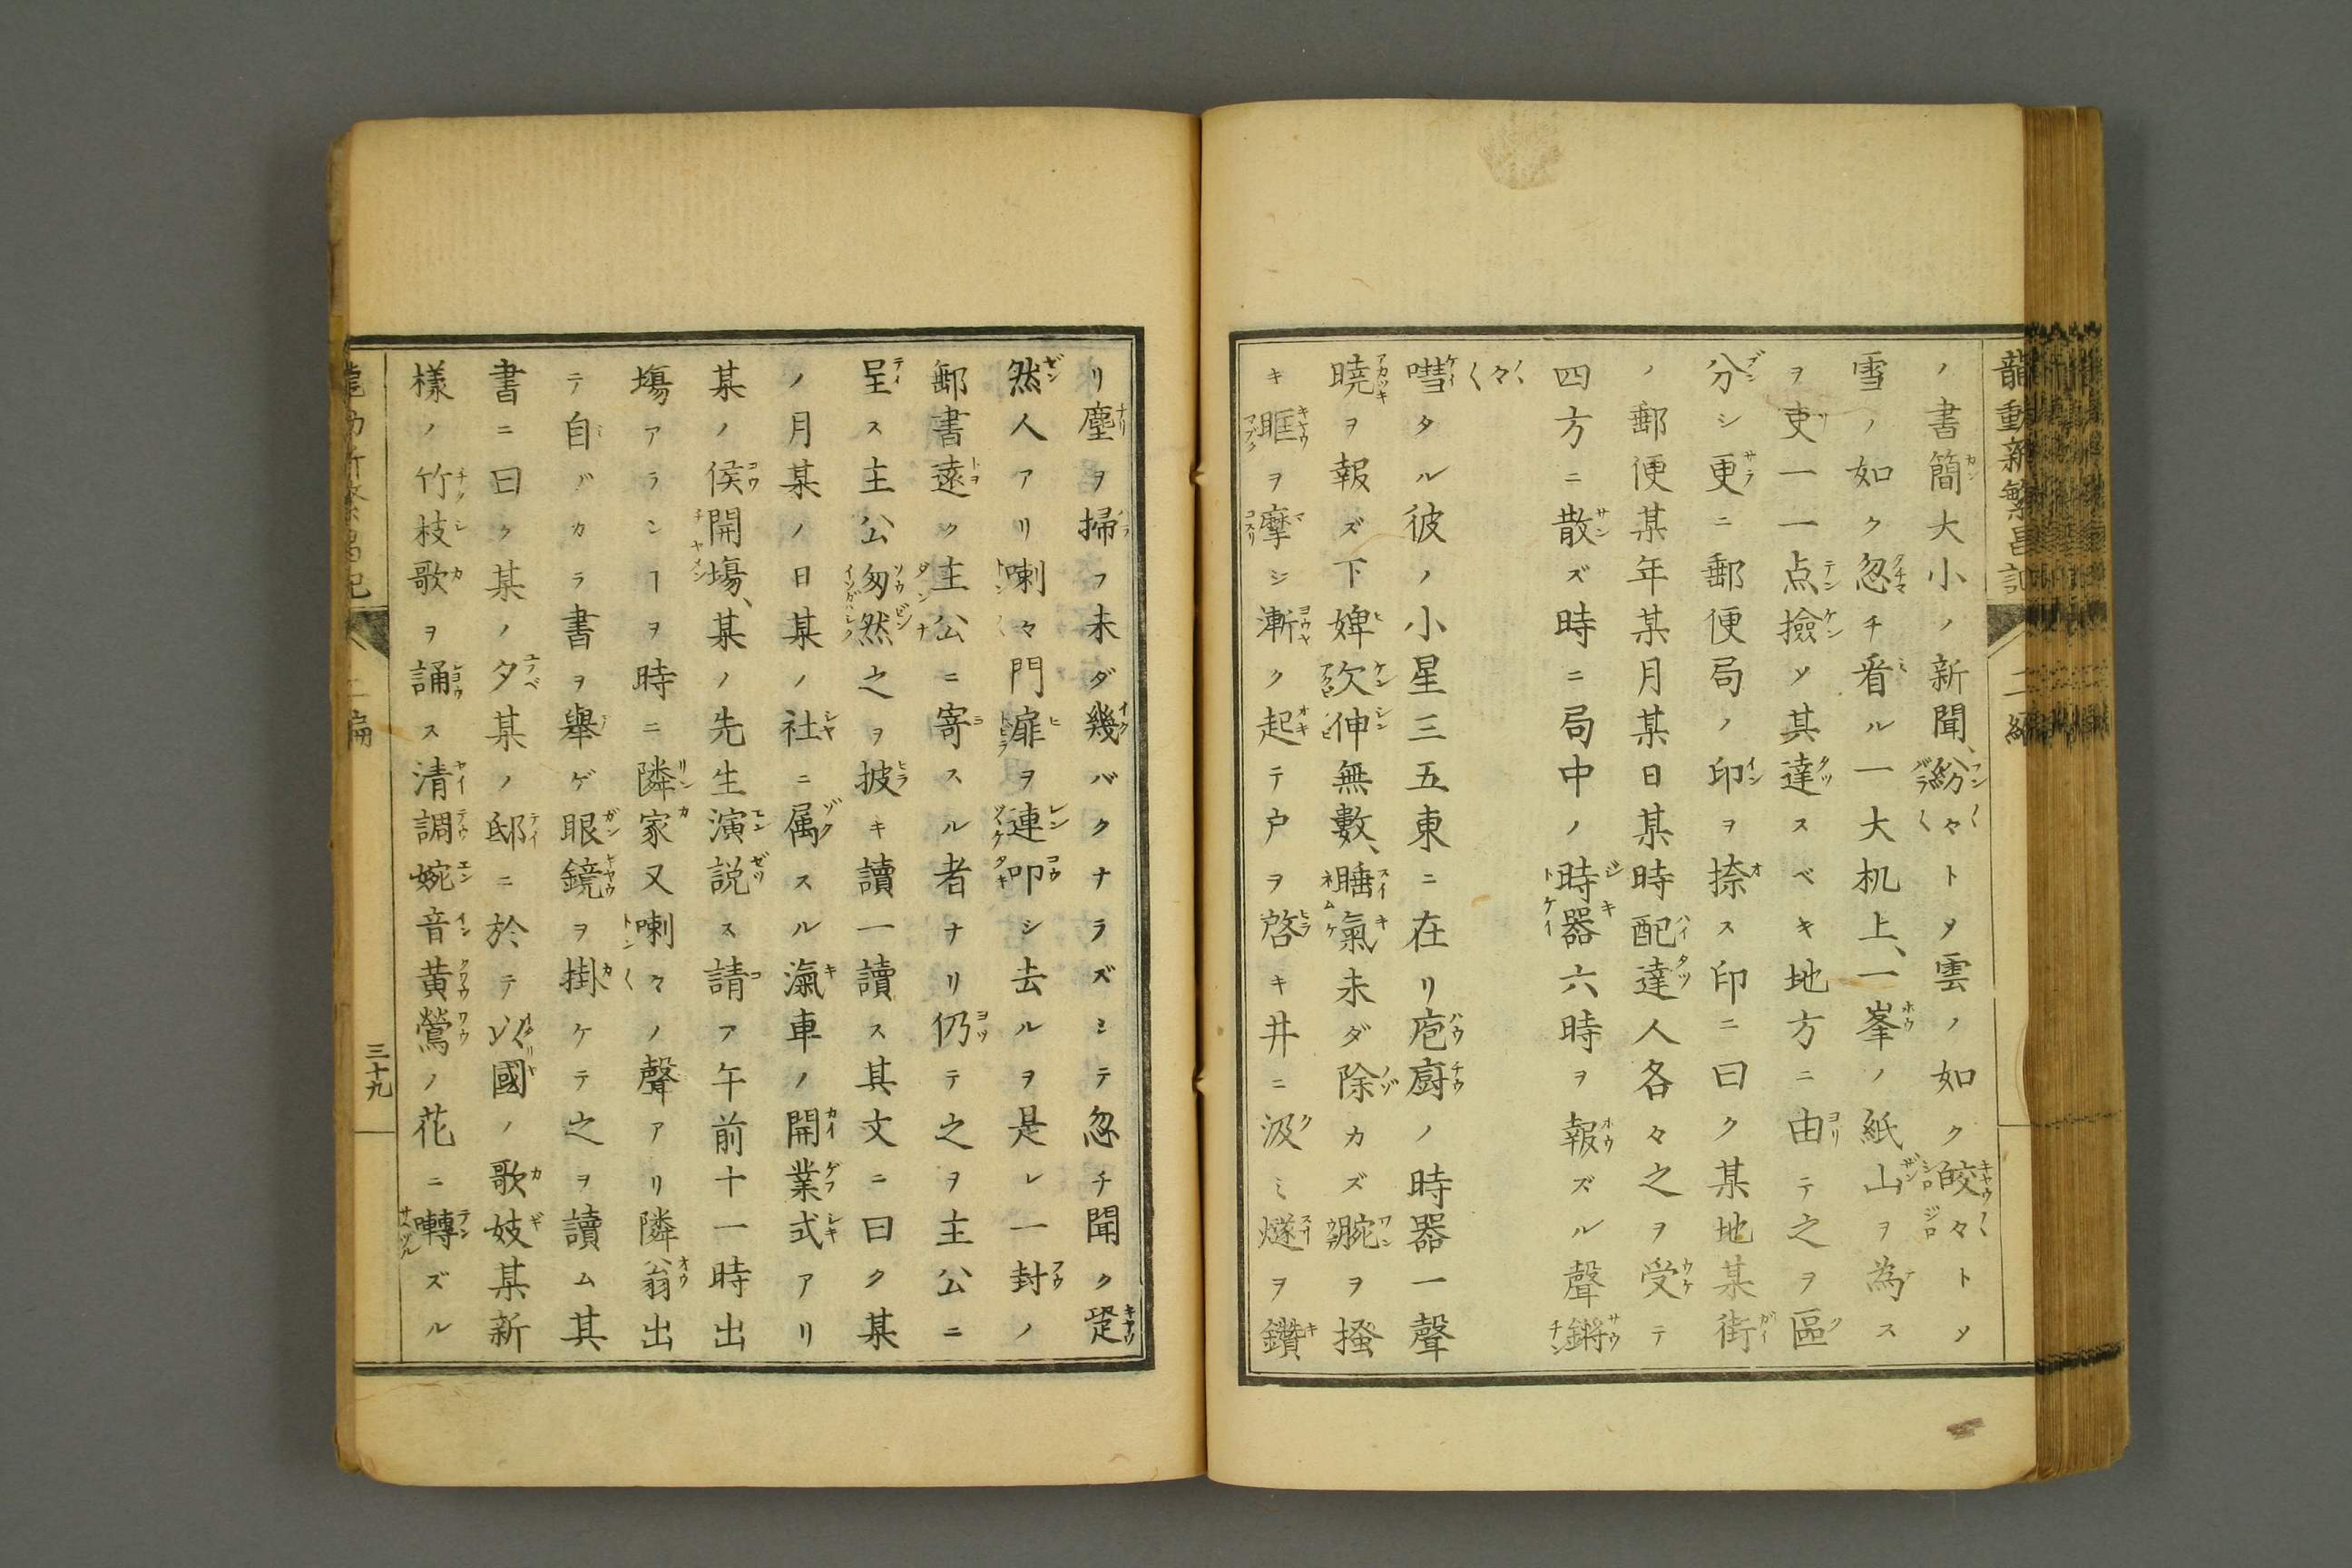 龍動新繁昌記 二編
ノ書簡大小ノ新聞、紛々トメ雲ノ如ク皎々トメ
雪ノ如ク忽チ看ル一大机上、一峯ノ紙山ヲ為ス
ヲ吏一一点撿メ其達スベキ地方ニ由テ之ヲ區
分シ更ニ郵便局ノ印ヲ捺ス印ニ曰ク某地某街
ノ郵便某年某月某日某時配達人各々之ヲ受テ
四方ニ散ズ時ニ局中ノ時器六時ヲ報ズル聲鏘
々
嘒タル彼ノ小星三五東ニ在リ庖廚ノ時器一聲
曉ヲ報ズ下婢欠伸無數、睡氣未ダ除カズ腕ヲ掻
キ眶ヲ摩シ漸ク起テ戸ヲ啓キ井ニ汲ミ燧ヲ鑽
リ塵ヲ掃フ未ダ幾バクナラズミテ忽チ聞ク跫
然人アリ喇々門扉ヲ連叩シ去ルヲ是レ一封ノ
郵書遠ク主公ニ寄スル者ナリ仍テ之ヲ主公ニ
呈ス主公匆然之ヲ披キ讀一讀ス其文ニ曰ク某
ノ月某ノ日某ノ社ニ属スル瀛車ノ開業式アリ
某ノ侯開塲、某ノ先生演説ス請フ午前十一時出
塲アランヿヲ時ニ隣家又喇々ノ聲アリ隣翁出
テ自ヅカラ書ヲ舉ゲ眼鏡ヲ掛ケテ之ヲ讀ム其
書ニ曰ク某ノ夕某ノ邸ニ於テ以國ノ歌妓某新
樣ノ竹枝歌ヲ誦ス清調婉音黄鶯ノ花ニ囀ズル
三十九